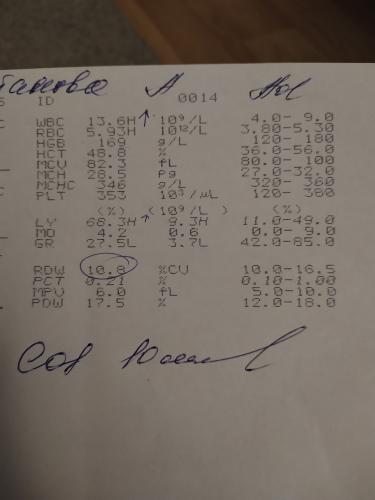 ID 0014
WBC 13.6H ↑ 10⁹/L 4.0- 9.0
RBC 5.93H 10¹²/L 3.80-5.30
HGB 169 g/L 120- 180
HCT 48.8 % 36.0-56.0
MCV 82.3 fL 80.0- 100
MCH 28.5 pg 27.0-32.0
MCHC 346 g/L 320- 360
PLT 353 10³/µL 120- 380
(%) (10⁹/L ) (%)
LY 68.3H ↑ 9.3H 11.0-49.0
MO 4.2 0.6 0.0- 9.0
GR 27.5L 3.7L 42.0-85.0
RDW 10.8 %CV 10.0-16.5
PCT 0.21 % 0.10-1.00
MPV 6.0 fL 5.0-10.0
PDW 17.5 % 12.0-18.0